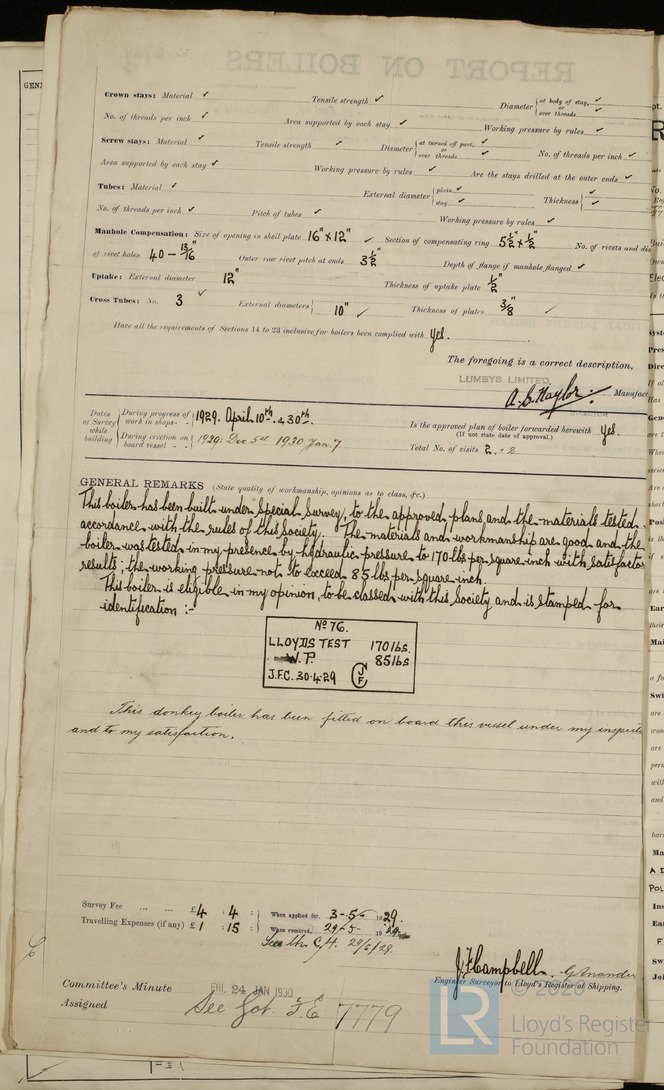 GENE
Crown stays: Material ✓ Tensile strength ✓ Diameter { at body of stay, ✓ or over threads ✓
No. of threads per inch ✓ Area supported by each stay ✓ Working pressure by rules ✓
Screw stays: Material ✓ Tensile strength ✓ Diameter { at turned off part, ✓ or over threads ✓ No. of threads per inch ✓
Area supported by each stay ✓ Working pressure by rules ✓ Are the stays drilled at the outer ends ✓
Tubes: Material ✓ External diameter { plain ✓ stay ✓ Thickness { ✓ ✓
No. of threads per inch ✓ Pitch of tubes ✓ Working pressure by rules ✓
Manhole Compensation: Size of opening in shell plate 16" x 12" ✓ Section of compensating ring 5½ x ½" No. of rivets and dia
of rivet holes 40 - 13/16" Outer row rivet pitch at ends 3½" Depth of flange if manhole flanged ✓
Uptake: External diameter 12" Thickness of uptake plate ½"
Cross Tubes: No. 3 ✓ External diameters { 10" ✓ Thickness of plates 3/8" ✓
Have all the requirements of Sections 14 to 23 inclusive for boilers been complied with Yes.
The foregoing is a correct description,
LUMBYS LIMITED.
A.S. Naylor. Manufact
DIRECTOR
Dates of Survey while building { During progress of work in shops - - } 1929. April. 10th. & 30th.
{ During erection on board vessel - - } 1929: Dec 5th 1930. Jan. 7.
Is the approved plan of boiler forwarded herewith Yes.
(If not state date of approval.)
Total No. of visits 2. + 2
GENERAL REMARKS (State quality of workmanship, opinions as to class, &c.)
This boiler has been built under Special Survey, to the approved plans, and the materials tested
accordance with the rules of this Society. The materials and workmanship are good and the
boiler was tested in my presence by hydraulic pressure to 170 lbs per square inch with satisfactor
results; the working pressure not to exceed 85 lbs per square inch.
This boiler is eligible in my opinion, to be classed with this Society and is stamped for
identification :-
No 76.
LLOYDS TEST 170 lbs.
W.P. 85 lbs
J.F.C. 30.4.29
This donkey boiler has been fitted on board this vessel under my inspecti
and to my satisfaction.
Survey Fee ... ... £ 4 : 4 : When applied for. 3-5- 1929.
Travelling Expenses (if any) £ 1 : 15 : When received, 29-5- 1929
29/5/29.
J.F. Campbell.
Engineer Surveyor to Lloyd's Register of Shipping.
Committee's Minute FRI. 24 JAN 1930
Assigned See 7779
LR © 2020
Lloyd's Register
Foundation